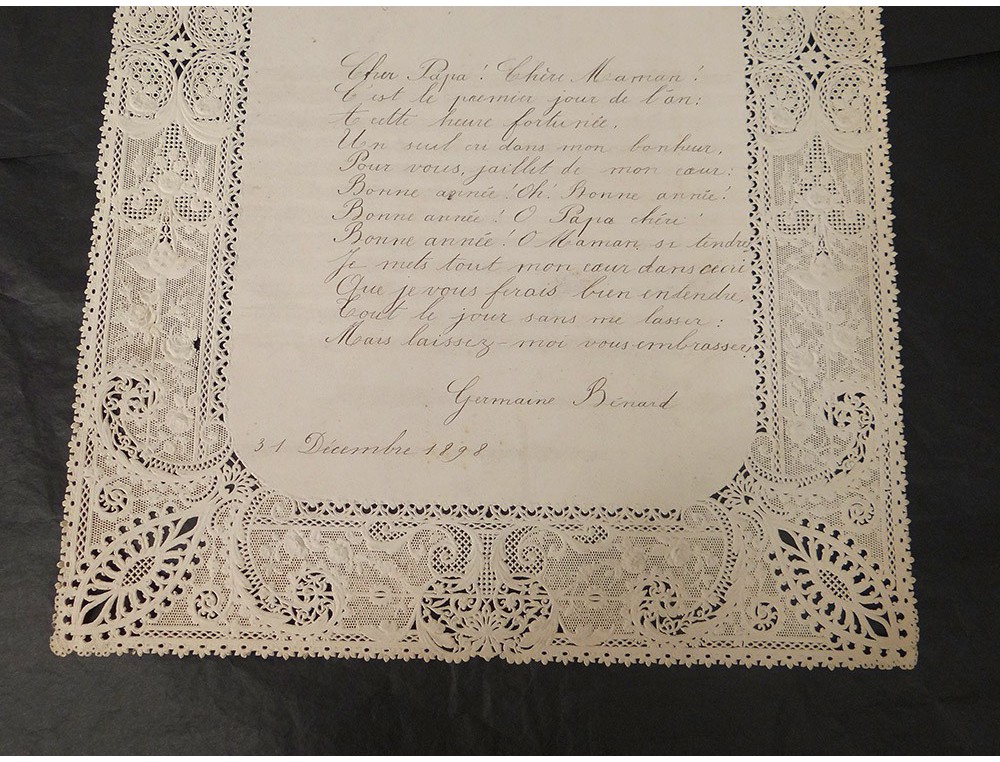 Cher Papa! Chère Maman!
C'est le premier jour de l'an:
A cette heure fortunée,
Un seul cri dans mon bonheur,
Pour vous, jaillet de mon cœur:
Bonne année! Oh! Bonne année!
Bonne année! O Papa chéri
Bonne année! O Maman, si tendre
Je mets tout mon cœur dans ce cri
Que je vous ferais bien entendre,
Tout le jour sans me lasser:
Mais laissez-moi vous embrasser,
Germaine Bénard
31 Décembre 1898